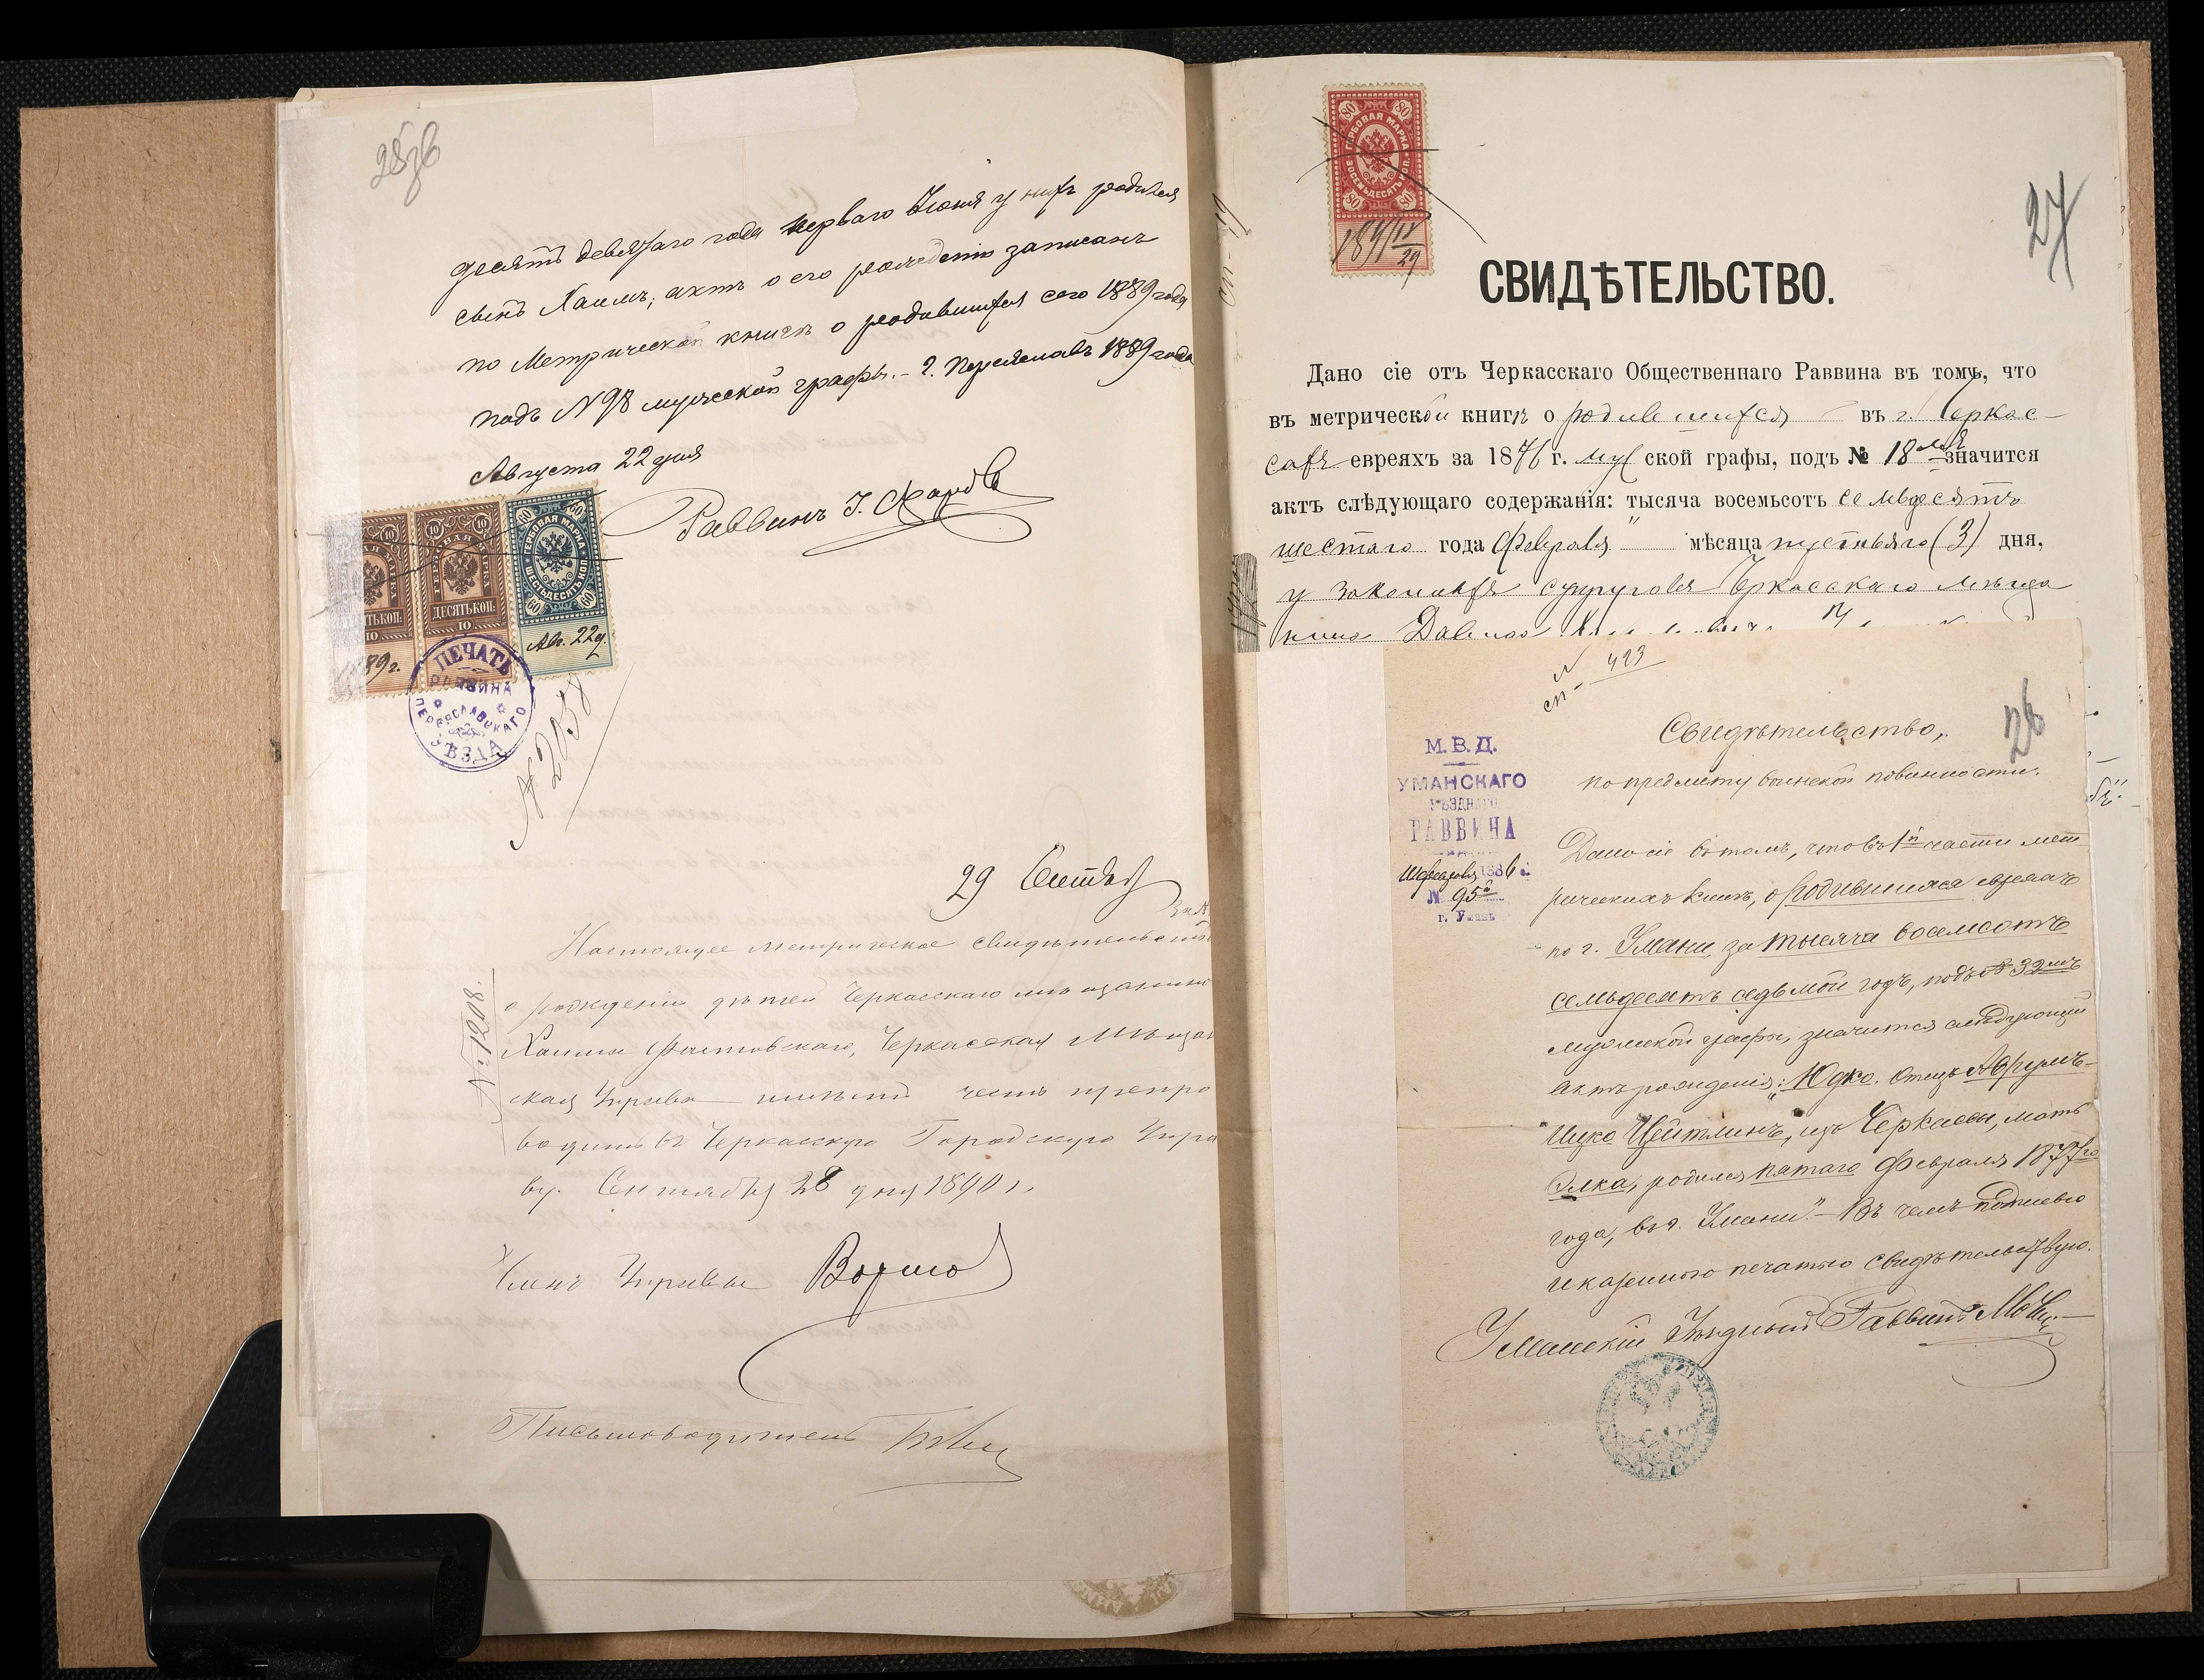 десятъ девятаго года перваго Іюня у нихъ родился
сынъ Хаимъ; актъ о его рожденіи записанъ
по Метрической книгѣ о родившихся сего 1889 года
подъ № 98 мужеской графы. - г. Переяславъ 1889 года
Августа 22 дня
Раввинъ І.
ДЕСЯТЬ КОП:
10
ГЕРБОВАЯ МАРКА
ШЕСТЬДЕСЯТЪ КОП.
60
1889 г.
Авг. 22 д.
ПЕЧАТЬ
РАВВИНА
ПЕРЕЯСЛАВСКАГО
УѢЗДА
№ 2058
29 Сентяб
Настоящее метрическое свидѣтельство
о рожденіи дѣтей Черкасскаго мѣщанина
Хаима Фастовскаго, Черкасская Мѣщан
ская Управа имѣетъ честь препро
водить въ Черкасскую Городскую Упра
ву. Сентября 28 дня 1890 г.
№ 1208.
Членъ Управы
Письмоводитель
27
ГЕРБОВАЯ МАРКА
ВОСЕМЬДЕСЯТЪ КОП.
80
СВИДѢТЕЛЬСТВО.
Дано сіе отъ Черкасскаго Общественнаго Раввина въ томъ, что
въ метрической книгѣ о родившихся въ г. Черкас-
сахъ евреяхъ за 1876 г. мужской графы, подъ № 18мъ значится
актъ слѣдующаго содержанія: тысяча восемьсотъ семьдесятъ
шестаго года Февраля мѣсяца третьяго (3) дня,
у законныхъ супруговъ Черкасскаго мѣща
нина Давида
№ 423
26
М. В. Д.
УМАНСКАГО
УѢЗДНАГО
РАВВИНА
Февраля 1886 г.
№ 95
г. Умань
Свидѣтельство,
по предмету воинской повинности.
Дано сіе въ томъ, что въ 1й части мет
рическихъ книгъ, о родившихся евреяхъ
по г. Умани, за тысяча восемсотъ
семьдесятъ седьмой годъ, подъ № 32мъ
мужеской графы, значится слѣдующій
актъ рожденія: "Юдко. Отецъ Аврумъ-
Ицко Цейтлинъ, изъ Черкассы, мать
Элка, родился пятаго Февраля 1877го
года, въ г. Умани." - Въ чемъ подписью
и казенною печатью свидѣтельствую.
Уманскій Уѣздный Раввинъ